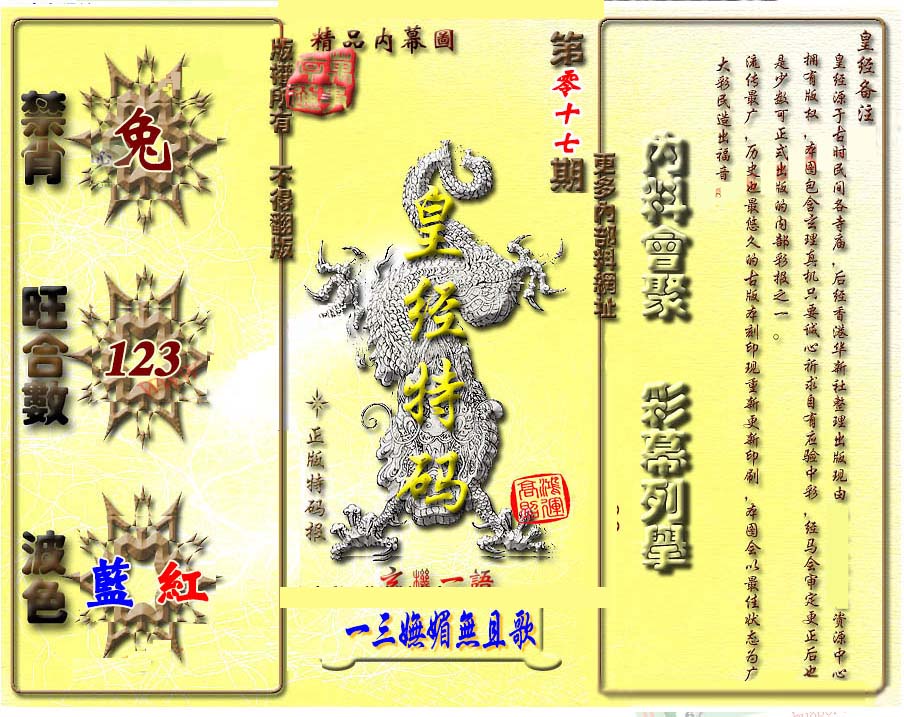 精品内幕圖
第零十七期
版權所有 不得翻版
更多內部料網址
禁肖
兔
旺合數
123
波色
藍 紅
皇经特码
正版特码报
鴻運高照
玄機一語
一三嫵媚無且歌
内料會聚
彩幕列舉
皇经备注
皇经源于古时民间各寺庙,后经香港华新社整理出版现由 资源中心
拥有版权,本图包含玄理真机只要诚心祈求自有应验中彩,经马会审定更正后也
是少数可正式出版的内部彩报之一。
流传最广,历史也最悠久的古版本刻印现重新更新印刷,本图会以最佳状态为广
大彩民造出福音